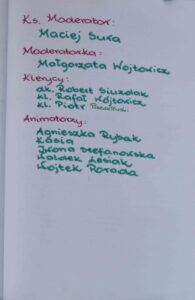 Ks. Moderator:
Maciej Sura
Moderatorka:
Małgorzata Wójtowicz
Klerycy:
dk. Robert
kl. Rafał Wójtowicz
kl. Piotr
Animatorzy:
Agnieszka Rybak
Kasia
Irona Stefanowska
Waldek Lesiak
Wojtek Porada